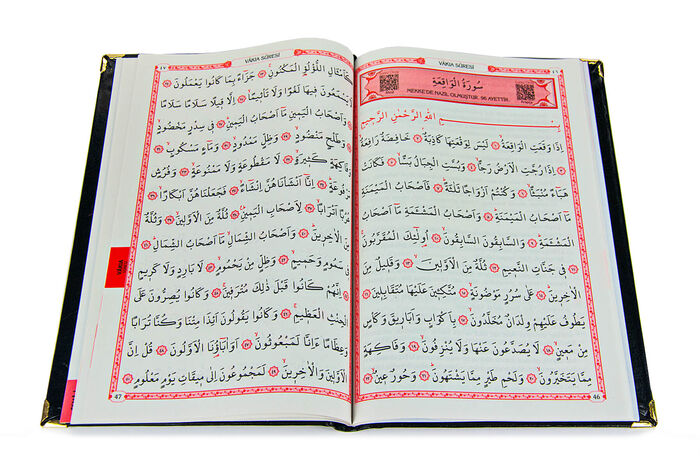 VÂKIA SÛRESİ
٤٦
سُورَةُ الْوَاقِعَةِ
MEKKE'DE NAZİL OLMUŞTUR. 96 AYETTİR.
بِسْمِ اللّٰهِ الرَّحْمٰنِ الرَّحِيمِ
اِذَا وَقَعَتِ الْوَاقِعَةُۙ ﴿١﴾ لَيْسَ لِوَقْعَتِهَا كَاذِبَةٌۢ ﴿٢﴾ خَافِضَةٌ رَافِعَةٌۙ ﴿٣﴾
اِذَا رُجَّتِ الْاَرْضُ رَجًّاۙ ﴿٤﴾ وَبُسَّتِ الْجِبَالُ بَسًّاۙ ﴿٥﴾ فَكَانَتْ
هَبَٓاءً مُنْبَثًّاۙ ﴿٦﴾ وَكُنْتُمْ اَزْوَاجًا ثَلٰثَةًۜ ﴿٧﴾ فَاَصْحَابُ الْمَيْمَنَةِ
مَٓا اَصْحَابُ الْمَيْمَنَةِۜ ﴿٨﴾ وَاَصْحَابُ الْمَشْـَٔمَةِ مَٓا اَصْحَابُ
الْمَشْـَٔمَةِۜ ﴿٩﴾ وَالسَّابِقُونَ السَّابِقُونَۙ ﴿١٠﴾ اُو۬لٰٓئِكَ الْمُقَرَّبُونَۚ ﴿١١﴾
فِي جَنَّاتِ النَّعِيمِ ﴿١٢﴾ ثُلَّةٌ مِنَ الْاَوَّلِينَۙ ﴿١٣﴾ وَقَلِيلٌ مِنَ
الْاٰخِرِينَۜ ﴿١٤﴾ عَلٰى سُرُرٍ مَوْضُونَةٍۙ ﴿١٥﴾ مُتَّكِـِٔينَ عَلَيْهَا مُتَقَابِلِينَ ﴿١٦﴾
يَطُوفُ عَلَيْهِمْ وِلْدَانٌ مُخَلَّدُونَۙ ﴿١٧﴾ بِاَكْوَابٍ وَاَبَارِيقَ وَكَأْسٍ
مِنْ مَعِينٍۙ ﴿١٨﴾ لَا يُصَدَّعُونَ عَنْهَا وَلَا يُنْزِفُونَۙ ﴿١٩﴾ وَفَاكِهَةٍ
مِمَّا يَتَخَيَّرُونَۙ ﴿٢٠﴾ وَلَحْمِ طَيْرٍ مِمَّا يَشْتَهُونَۜ ﴿٢١﴾ وَحُورٌ عِينٌۙ ﴿٢٢﴾
46
VÂKIA SÛRESİ
٤٧
كَاَمْثَالِ اللُّؤْلُؤِ الْمَكْنُونِۚ ﴿٢٣﴾ جَزَٓاءً بِمَا كَانُوا يَعْمَلُونَ ﴿٢٤﴾
يَسْمَعُونَ فِيهَا لَغْوًا وَلَا تَأْثِيمًاۙ ﴿٢٥﴾ اِلَّا قِيلًا سَلَامًا سَلَامًا
وَاَصْحَابُ الْيَمِينِ مَٓا اَصْحَابُ الْيَمِينِۜ ﴿٢٧﴾ فِي سِدْرٍ مَخْضُودٍۙ ﴿٢٨﴾
وَطَلْحٍ مَنْضُودٍۙ ﴿٢٩﴾ وَظِلٍّ مَمْدُودٍۙ ﴿٣٠﴾ وَمَٓاءٍ مَسْكُوبٍۙ ﴿٣١﴾
وَفَاكِهَةٍ كَثِيرَةٍۙ ﴿٣٢﴾ لَا مَقْطُوعَةٍ وَلَا مَمْنُوعَةٍۙ ﴿٣٣﴾ وَفُرُشٍ
مَرْفُوعَةٍۜ ﴿٣٤﴾ اِنَّٓا اَنْشَأْنَاهُنَّ اِنْشَٓاءًۙ ﴿٣٥﴾ فَجَعَلْنَاهُنَّ اَبْكَارًاۙ ﴿٣٦﴾
عُرُبًا اَتْرَابًاۙ ﴿٣٧﴾ لِاَصْحَابِ الْيَمِينِۜ ﴿٣٨﴾ ثُلَّةٌ مِنَ الْاَوَّلِينَۙ ﴿٣٩﴾ وَثُلَّةٌ
مِنَ الْاٰخِرِينَۜ ﴿٤٠﴾ وَاَصْحَابُ الشِّمَالِ مَٓا اَصْحَابُ الشِّمَالِۜ ﴿٤١﴾
فِي سَمُومٍ وَحَمِيمٍۙ ﴿٤٢﴾ وَظِلٍّ مِنْ يَحْمُومٍۙ ﴿٤٣﴾ لَا بَارِدٍ وَلَا كَرِيمٍ
اِنَّهُمْ كَانُوا قَبْلَ ذٰلِكَ مُتْرَفِينَۚ ﴿٤٥﴾ وَكَانُوا يُصِرُّونَ عَلَى
الْحِنْثِ الْعَظِيمِۚ ﴿٤٦﴾ وَكَانُوا يَقُولُونَ اَئِذَا مِتْنَا وَكُنَّا تُرَابًا
وَعِظَامًا ءَاِنَّا لَمَبْعُوثُونَۙ ﴿٤٧﴾ اَوَاٰبَٓاؤُ۬نَا الْاَوَّلُونَ ﴿٤٨﴾ قُلْ اِنَّ
الْاَوَّلِينَ وَالْاٰخِرِينَۙ ﴿٤٩﴾ لَمَجْمُوعُونَ اِلٰى مِيقَاتِ يَوْمٍ مَعْلُومٍ ﴿٥٠﴾
47
VÂKIA